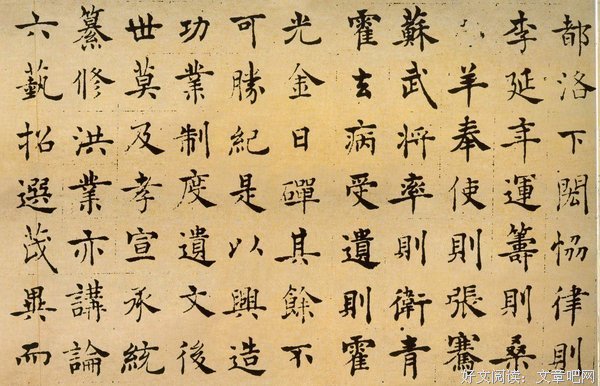 都洛下閎恊律則
李延年運籌則桑
羊奉使則張騫
蘇武將率則衛青
霍去病受遺則霍
光金日磾其餘不
可勝紀是以興造
功業制度遺文後
世莫及孝宣承統
纂修洪業亦講論
六藝招選茂異而
好文阅读：文章吧网